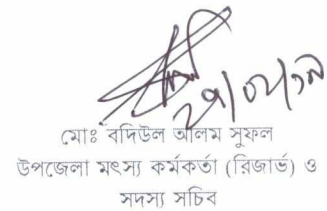 মোঃ বদিউল আলম সুফল
উপজেলা মৎস্য কর্মকর্তা (রিজার্ভ) ও
সদস্য সচিব